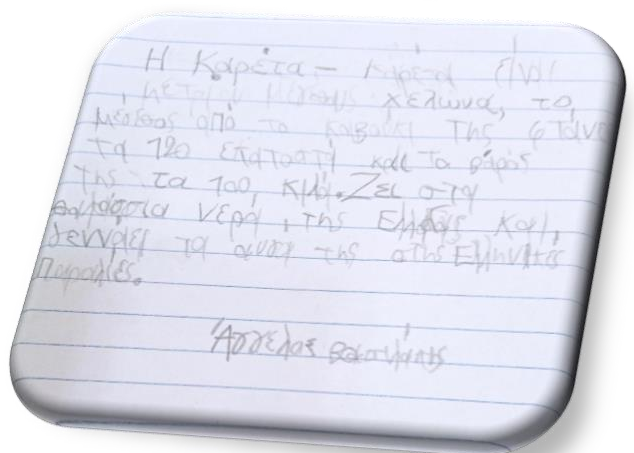 Η Καρέτα - Καρέτα είναι
μετρίου μεγέθους χελώνα, το
μέγεθος από το καβούκι της φτάνει
τα 120 εκατοστή και το βάρος
της τα 100, κιλά. Ζει στα
θαλάσσια νερά, της Ελλάδας και,
γεννάει τα αυγα της στης Ελληνικές
παραλίες.
Άγγελος